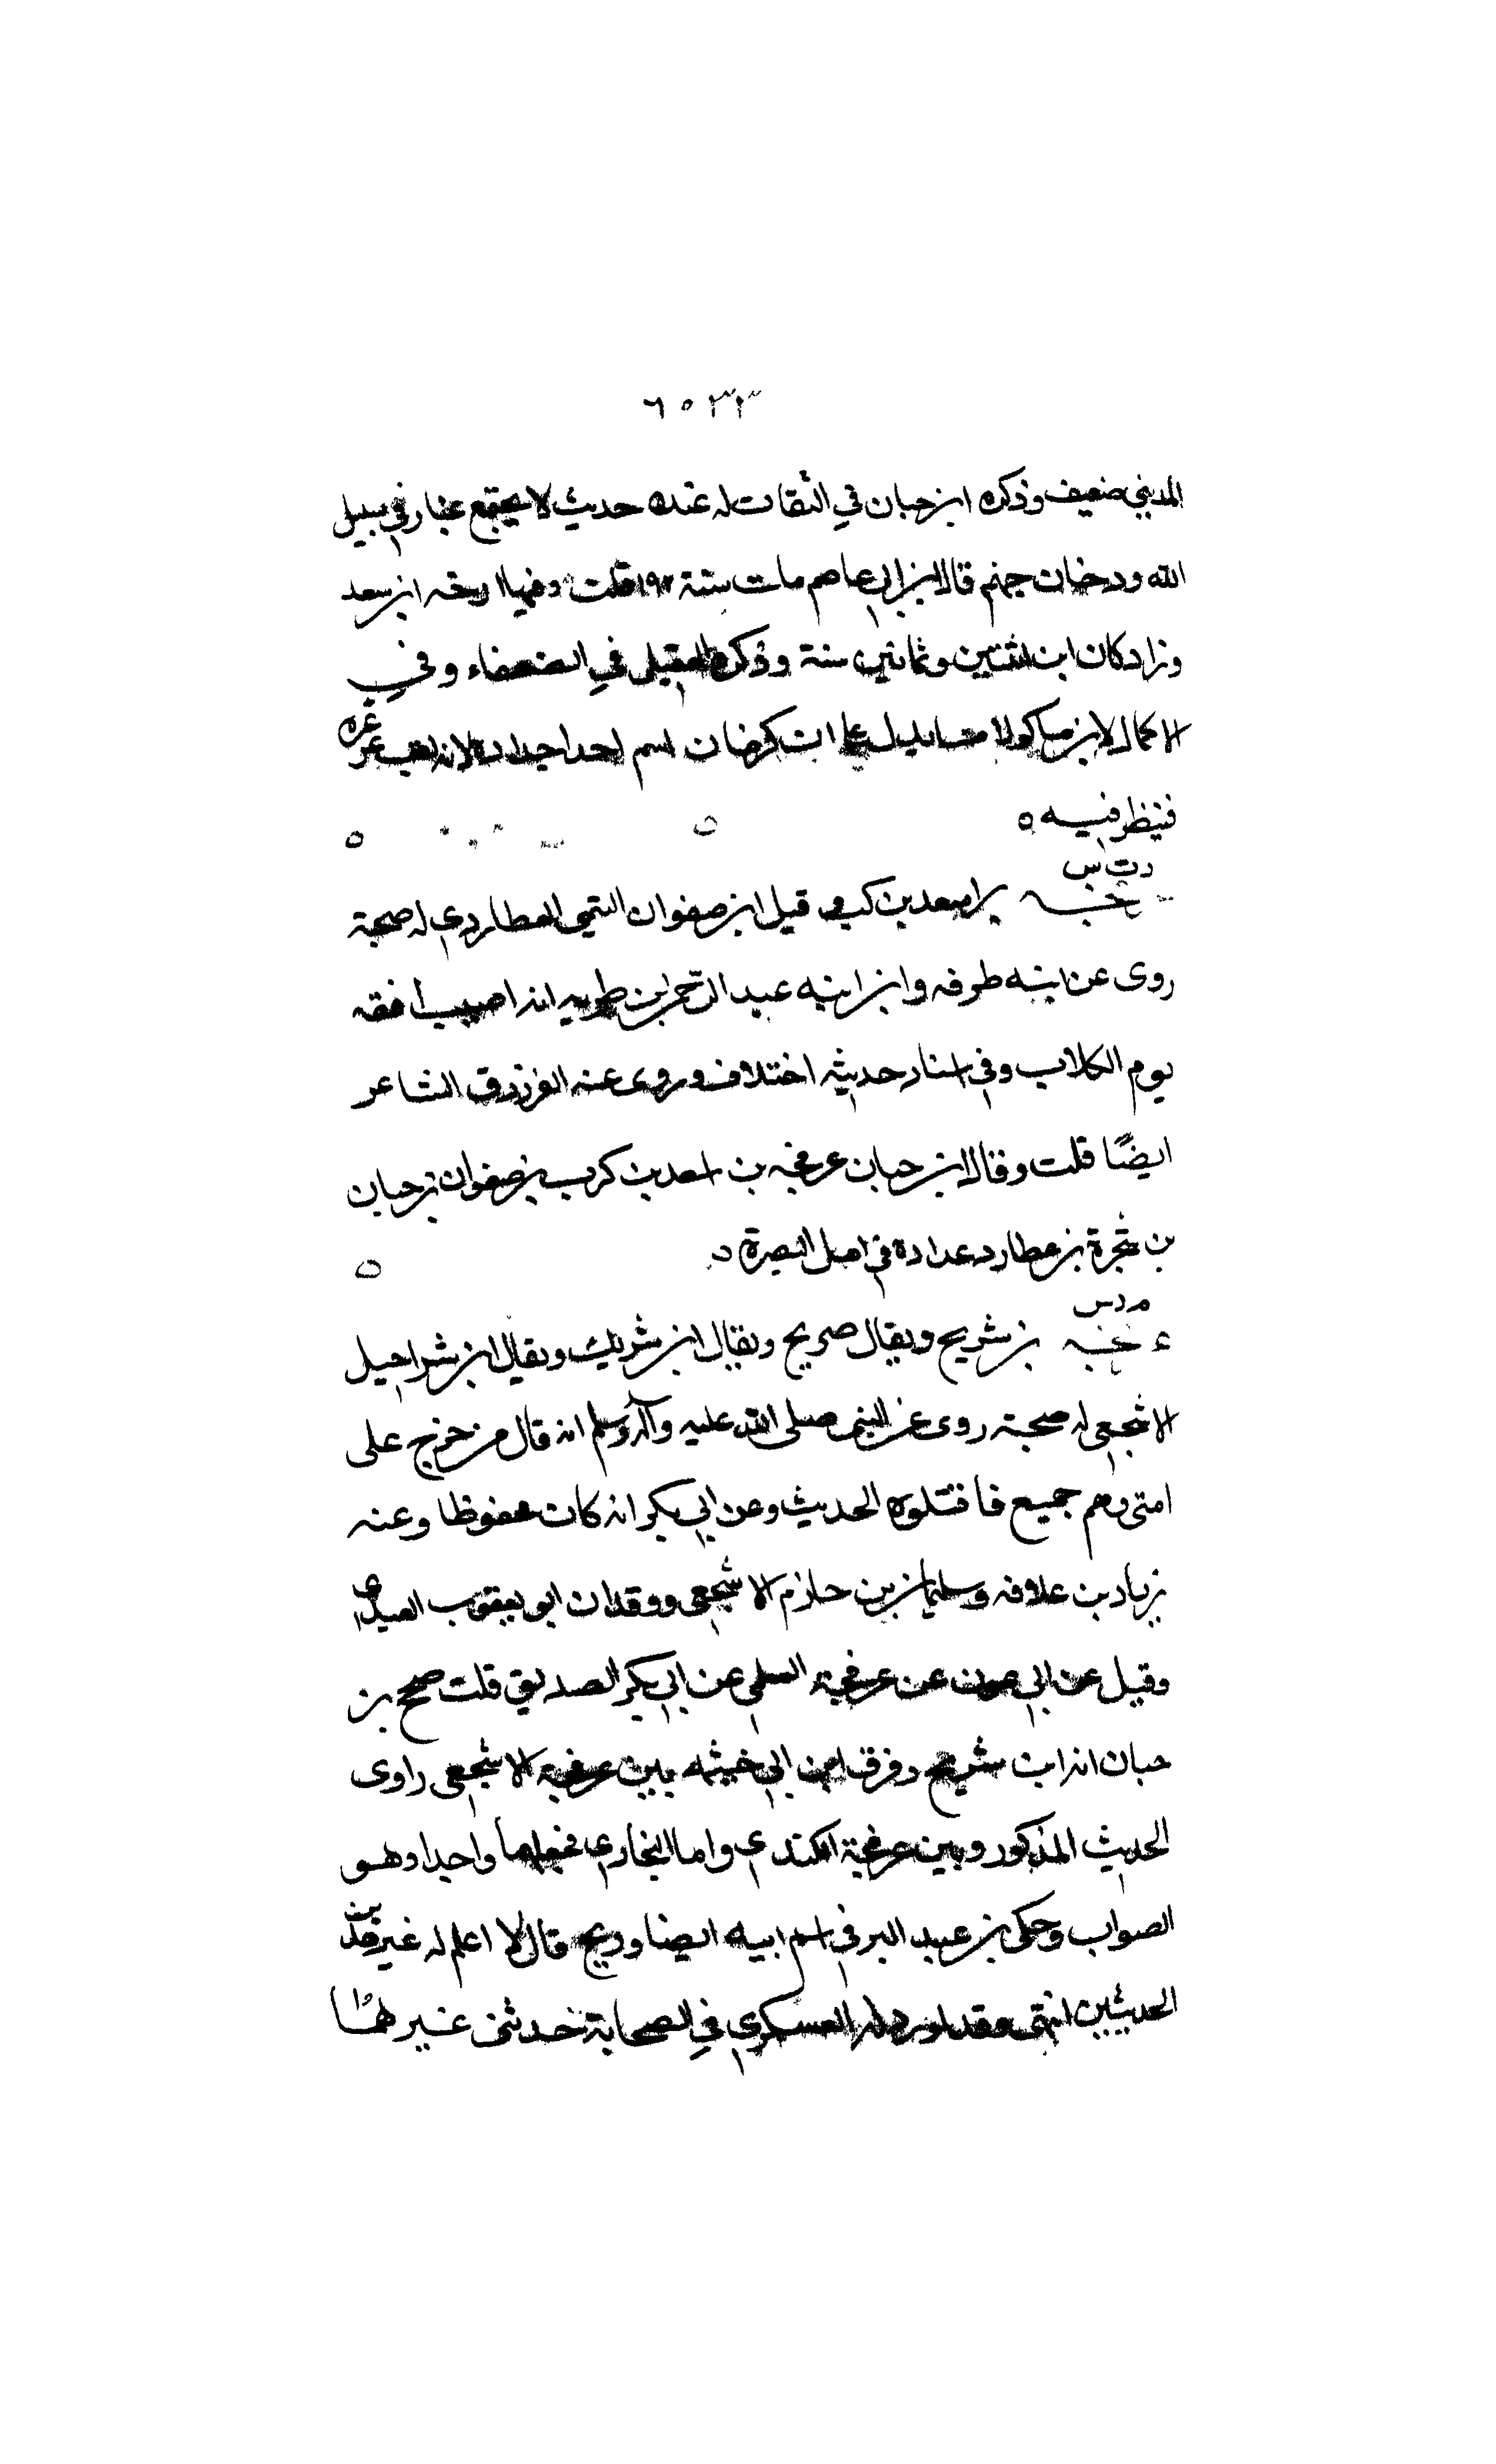 ٦٥٣٣
المديني ضعيف وذكره ابن حبان في الثقات له عنده حديث لا يجتمع غبار في سبيل
الله ودخان جهنم قال ابن ابي عاصم مات سنة ١٩٢ قلت وفيها ارخه ابن سعد
وزاد كان ابن اثنتين وثمانين سنة وذكره العقيلي في الضعفاء وفي
الاكمال لابن ماكولا ما يدل على ان كرمان اسم احد اجداده لانه غيره
فينظر فيه ه
د ت س
بن اسعد بن كرب وقيل ابن صفوان التيمي العطاردي له صحبة
روى عن ابنه طرفه وابن ابنه عبد الرحمن بن طرفه انه اصيب انفه
يوم الكلاب وفي اسناد حديثه اختلاف وروى عنه الفرزدق الشاعر
ايضًا قلت وقال ابن حبان عرفجه بن اسعد بن كرب بن صفوان بن حبان
بن شجرة بن عطارد عداده في اهل البصرة
م د س
ع بن شريح ويقال صريح ويقال ابن شريك ويقال ابن شراحيل
الاشجعي له صحبة روى عن النبي صلى الله عليه وآله وسلم انه قال من خرج على
امتي وهم جميع فاقتلوه الحديث وعن ابي بكر ان كان محفوظا وعنه
زياد بن علاقه وسليمان بن حازم الاشجعي ووقدان ابو يعقوب العبدي
وقيل عن ابي عون عن عرفجة السلمي عن ابي بكر الصديق قلت صحح بن
حبان انه ابن شريح وفرق ابن ابي خيثمه بين عرفجة الاشجعي راوي
الحديث المذكور وبين عرفجة الكندي واما البخاري فجعلهما واحدا وهو
الصواب وحكى بن عبد البر في اسم ابيه ايضا وديح قال لا اعلم له غير هذين
الحديثين انتهى وقد اورد له العسكري في الصحابة حديثين غيرهما